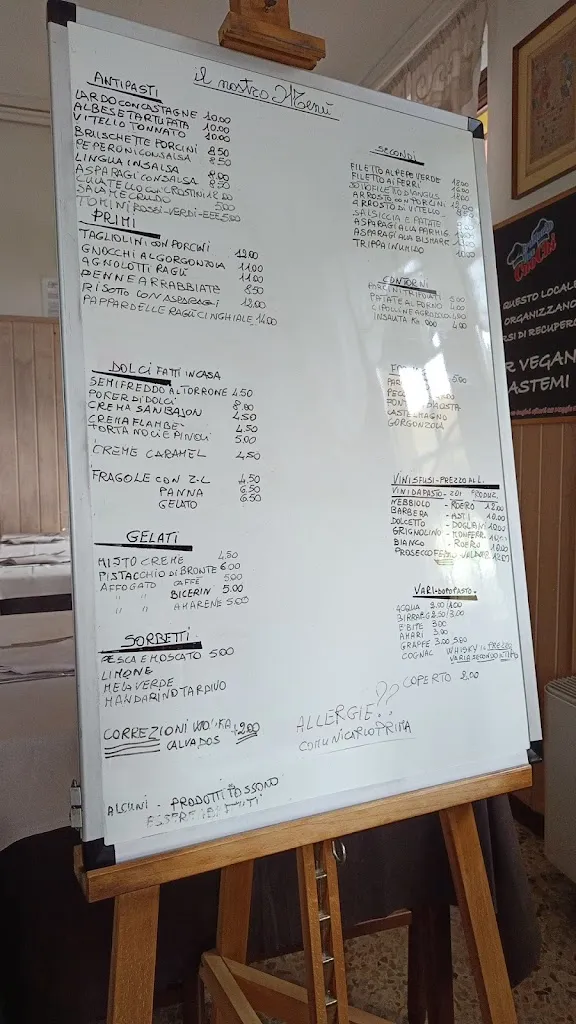 il nostro Menù
ANTIPASTI
LARDO CON CASTAGNE 10.00
ALBESE TARTUFATA 10.00
VITELLO TONNATO 10.00
BRUSCHETTE PORCINI 8.50
PEPERONI CON SALSA 8.50
LINGUA IN SALSA 8.00
ASPARAGI CON SALSA 8.50
CULATELLO CON CROSTINI 12.00
SALAME CRUDO 5.00
TOMINI ROSSI-VERDI-EEE 5.00
PRIMI
TAGLIOLINI CON PORCINI 12.00
GNOCCHI AL GORGONZOLA 11.00
AGNOLOTTI RAGÙ 11.00
PENNE ARRABBIATE 8.50
RISOTTO CON ASPARAGI 12.00
PAPPARDELLE RAGÙ CINGHIALE 14.00
DOLCI FATTI IN CASA
SEMIFREDDO AL TORRONE 4.50
POKER DI DOLCI 8.00
CREMA SANBAJON 4.50
CREMA FLAMBÈ 4.50
TORTA NOCI E PINOLI 5.00
CREME CARAMEL 4.50
FRAGOLE CON Z-L 4.50
PANNA 6.50
GELATO 6.50
GELATI
MISTO CREME 4.50
PISTACCHIO DI BRONTE 6.00
AFFOGATO CAFFÈ 5.00
" " BICERIN 5.00
" " AMARENE 5.00
SORBETTI
PESCA E MOSCATO 5.00
LIMONE
MELA VERDE
MANDARINO TARDIVO
CORREZIONI +2.00
CALVADOS
ALCUNI - PRODOTTI POSSONO
ESSERE
SECONDI
FILETTO AL PEPE VERDE 18.00
FILETTO AI FERRI 16.00
SOTTOFILETTO D'ANGUS 18.00
ARROSTO CON PORCINI 12.00
ARROSTO DI VITELLO
SALSICCIA E PATATE
ASPARAGI ALLA PARMIG
ASPARAGI ALLA BISMARK
TRIPPA IN UMIDO 10.00
CONTORNI
PORCINI TRIFOLATI
PATATE AL FORNO 4.00
CIPOLLINE AGRODOLCI
INSALATA 4.00
5.00
CASTELMAGNO
GORGONZOLA
VINI SFUSI - PREZZO AL L.
VINI DA PASTO - PRODUZ.
NEBBIOLO - ROERO 12.00
BARBERA - ASTI 10.00
DOLCETTO - DOGLIANI 10.00
GRIGNOLINO - MONFERR.
BIANCO - ROERO 10.00
PROSECCO
VARI-DOPOPASTO.
ACQUA 2.00/1.00
BIRRA 2.50/3.00
BIBITE 3.00
AMARI 3.00
GRAPPE 3.00 5.00
COGNAC WHISKY IL PREZZO
VARIA SECONDO TIPO
COPERTO 2.00
ALLERGIE??
COMUNICARLO PRIMA
QUESTO LOCALE
ORGANIZZANO
RSI DI RECUPERO
R VEGANI
ASTEMI